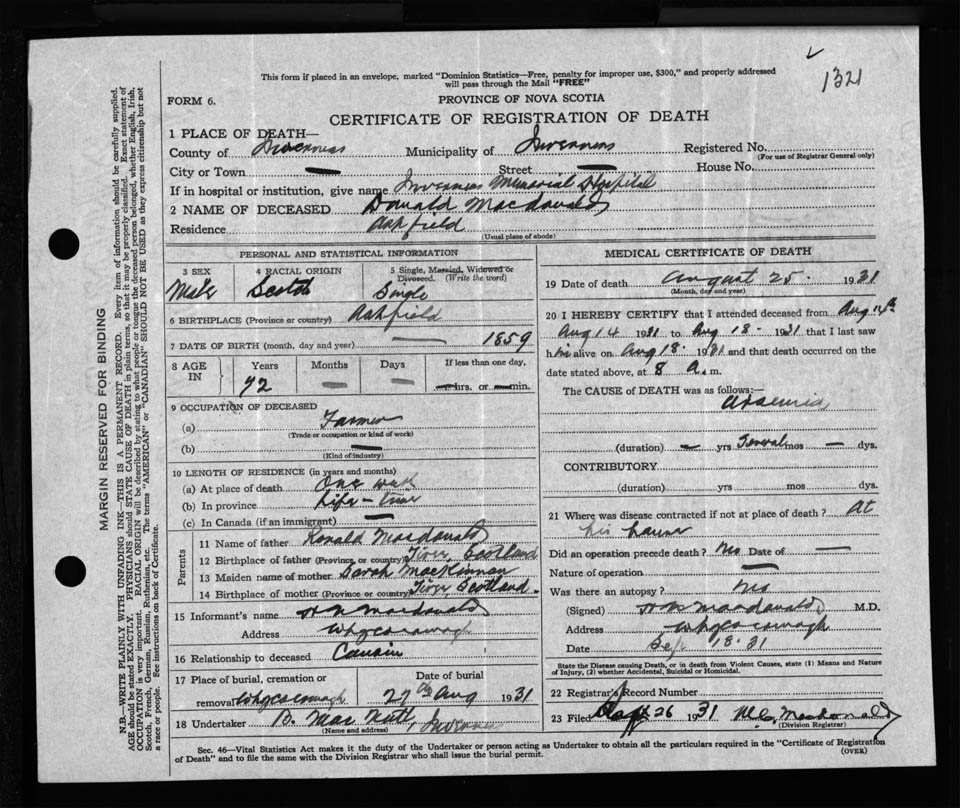 1321
This form if placed in an envelope, marked "Dominion Statistics—Free, penalty for improper use, $300," and properly addressed
will pass through the Mail "FREE"
FORM 6.
PROVINCE OF NOVA SCOTIA
CERTIFICATE OF REGISTRATION OF DEATH
1 PLACE OF DEATH—
County of Inverness Municipality of Inverness Registered No.
(For use of Registrar General only)
City or Town — Street — House No.
If in hospital or institution, give name Inverness Memorial Hospital
2 NAME OF DECEASED Donald Macdonald
Residence Ashfield
(Usual place of abode)
PERSONAL AND STATISTICAL INFORMATION
3 SEX 4 RACIAL ORIGIN 5 Single, Married, Widowed or
Divorced. (Write the word)
Male Scotch Single
6 BIRTHPLACE (Province or country) Ashfield
7 DATE OF BIRTH (month, day and year) — 1859
8 AGE IN Years Months Days If less than one day,
72 — — — hrs. or — min.
9 OCCUPATION OF DECEASED
(a) Farmer
(Trade or occupation or kind of work)
(b) —
(Kind of industry)
10 LENGTH OF RESIDENCE (in years and months)
(a) At place of death One week
(b) In province Life-time
(c) In Canada (if an immigrant) —
Parents
11 Name of father Ronald Macdonald
12 Birthplace of father (Province or country) Tiree Scotland
13 Maiden name of mother Sarah MacKinnon
14 Birthplace of mother (Province or country) Tiree Scotland
15 Informant's name H N Macdonald
Address Whycocomagh
16 Relationship to deceased Cousin
17 Place of burial, cremation or Date of burial
removal Whycocomagh 27th Aug 1931
18 Undertaker D. MacNutt, Inverness
(Name and address)
MEDICAL CERTIFICATE OF DEATH
19 Date of death August 25. 1931
(Month, day and year)
20 I HEREBY CERTIFY that I attended deceased from Aug 14th
Aug 14 1931 to Aug 18. 1931 that I last saw
him alive on Aug 18. 1931 and that death occurred on the
date stated above, at 8 a.m.
The CAUSE OF DEATH was as follows:—
(duration) — yrs mos — dys.
CONTRIBUTORY
(duration) yrs mos dys.
21 Where was disease contracted if not at place of death? At
his home
Did an operation precede death? No Date of —
Nature of operation —
Was there an autopsy? No
(Signed) H N Macdonald M.D.
Address Whycocomagh
Date Sep 18. 31
State the Disease causing Death, or in death from Violent Causes, state (1) Means and Nature
of Injury, (2) whether Accidental, Suicidal or Homicidal.
22 Registrar's Record Number
23 Filed 26 1931
(Division Registrar)
Sec. 46—Vital Statistics Act makes it the duty of the Undertaker or person acting as Undertaker to obtain all the particulars required in the "Certificate of Registration
of Death" and to file the same with the Division Registrar who shall issue the burial permit. (OVER)
MARGIN RESERVED FOR BINDING
N.B.—WRITE PLAINLY WITH UNFADING INK—THIS IS A PERMANENT RECORD. Every item of information should be carefully supplied.
AGE should be stated EXACTLY. PHYSICIANS should STATE CAUSE OF DEATH in plain terms, so that it may be properly classified. Exact statement of
OCCUPATION is very important. RACIAL ORIGIN will be described by stating to what people or tongue the deceased person belonged, whether English, Irish,
Scotch, French, German, Russian, Ruthenian, etc. The terms "AMERICAN" or "CANADIAN" SHOULD NOT BE USED as they express citizenship but not
a race or people. See instructions on back of Certificate.